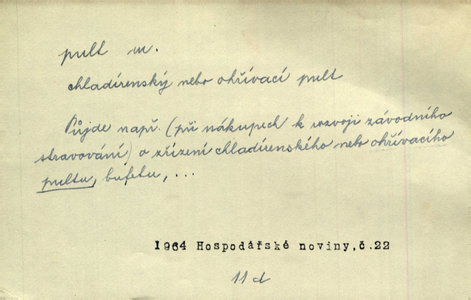 pult m.
chladírenský nebo ohřívací pult
Půjde např. (při nákupech k rozvoji závodního
stravování) o zřízení chladírenského nebo ohřívacího
pultu, bufetu, ...
1964 Hospodářské noviny,č.22
11 d